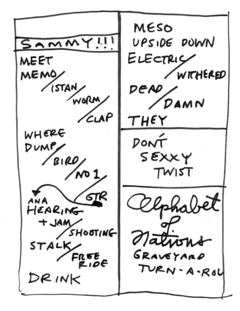 SAMMY!!!
MEET
MEMO/
ISTAN/
WORM/
CLAP
WHERE
DUMP/
BIRD/
NO 1/
GTR
ANA
HEARING
+ JAM/
SHOOTING
STALK/
FREE
RIDE
DRINK
MESO
UPSIDE DOWN
ELECTRIC/
WITHERED
DEAD/
DAMN
THEY
DON'T
SEXXY
TWIST
Alphabet
of
Nations
GRAVEYARD
TURN-A-ROU